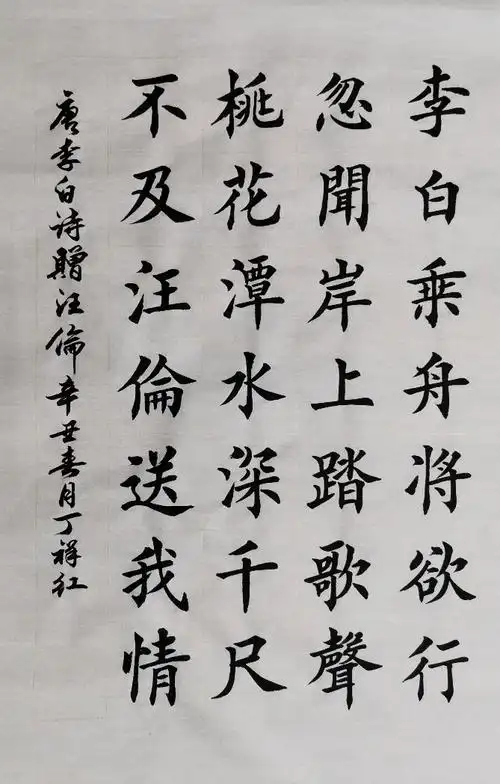 李白乘舟將欲行
忽聞岸上踏歌聲
桃花潭水深千尺
不及汪倫送我情
唐李白诗贈汪倫辛丑春月丁祥红